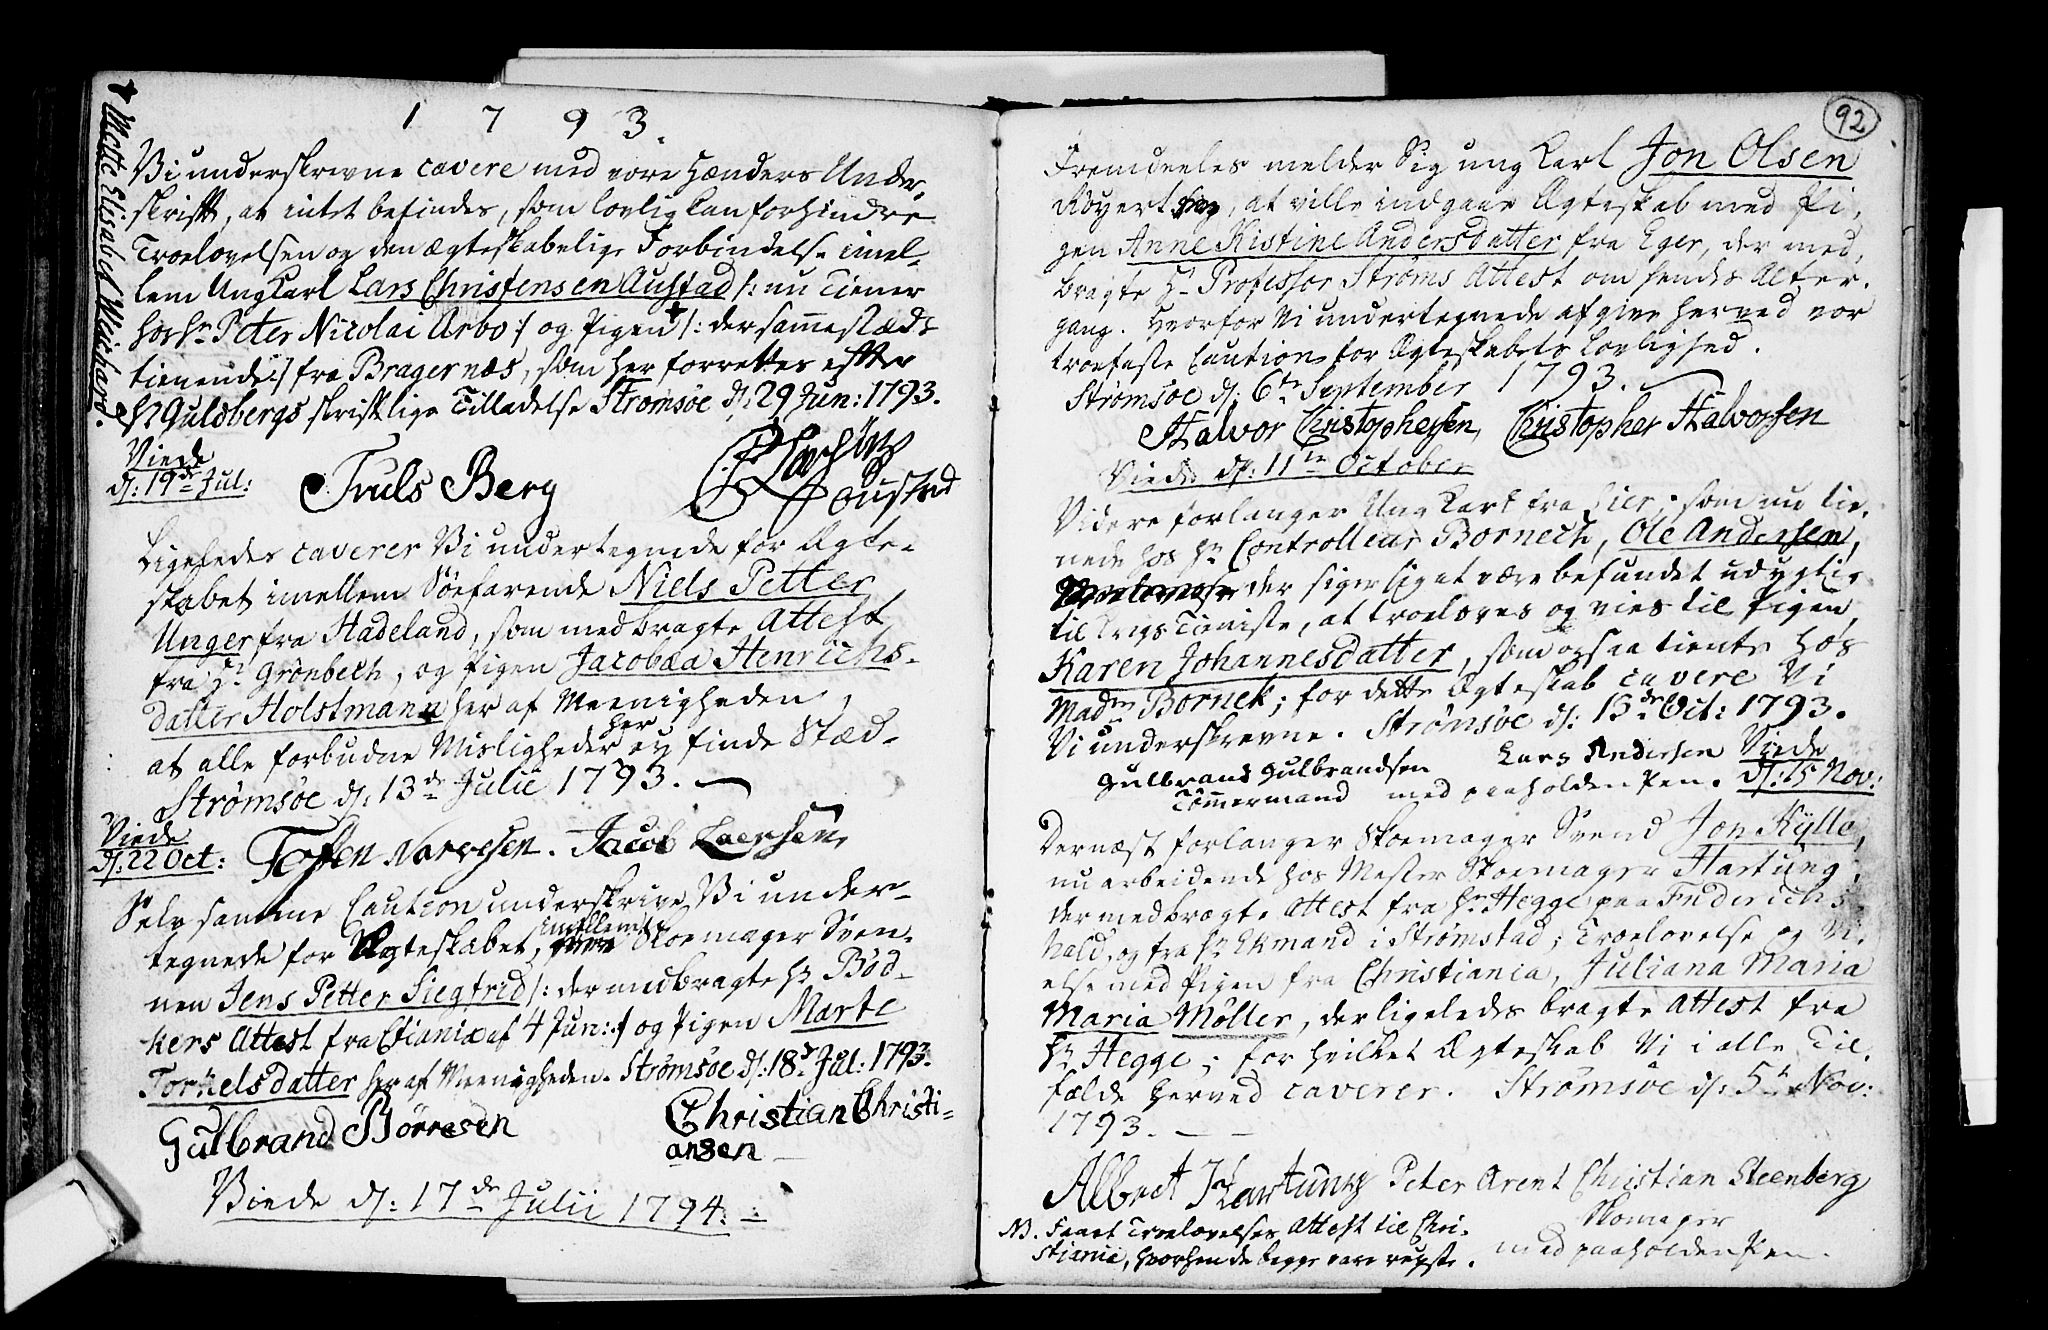 1793.
Vi underskrevne cavere med vore Hænders Under-
skrift, at intet befindes, som lovlig kan forhindre
Troelovelsen og den ægteskabelige Forbindelse imel-
lem Ungkarl Lars Christensen Austad /: nu Tiener
hos Hr Peter Nicolai Arbo :/ og Pigen + /: der sammestæds
tienende :/ fra Bragernæs, som her forrettes efter
Hr Guldbergs skriftlige Tilladelse Strømsøe d: 29 Jun: 1793.
+ Mette Elisabet Weichard.
Viede
d: 19de Jul:
Truls Berg
Austad
Ligeledes caverer Vi undertegnede for Ægte-
skabet imellem Søefarende Niels Petter
Unger fra Hadeland, som medbragte Attest
fra Hr Grønbech, og Pigen Jacobaa Henrichs-
datter Holstmann her af Meenigheden,
at alle forbudne Misligheder her ey finde Stæd-
Strømsøe d: 13de Julii 1793.
Viede
d: 22 Oct:
Toffen Narvesen. Jacob Laersen
Selv samme Caution underskrive Vi under-
tegnede for Ægteskabet, imellem Skoemager Sven-
nen Jens Petter Siegfrid /: der medbragte Hr Bød-
kers Attest fra Chania af 4 Jun: :/ og Pigen Marte
Torkelsdatter her af Meenigheden. Strømsøe d: 18de Jul: 1793.
Gulbrand Børresen
Christian Christi-
ansen
Viede d: 17de Julii 1794.
92
Fremdeeles melder Sig ung Karl Jon Olsen
Røyert, at ville indgaae Ægteskab med Pi-
gen Anne Kistine Andersdatter fra Eger, der med-
bragte Hr Professor Strøms Attest om hendes Alter-
gang. Hvorfor Vi undertegnede afgive herved vor
troefaste Caution for Ægteskabets Lovlighed.
Strømsøe d: 6te September 1793.
Halvor Christophersen, Christopher Halvorsen
Viede d: 11te October
Videre forlanger Ung Karl fra Lier, som nu tie-
nede hos Hr Controlleur Bornech, Ole Andersen,
der siger sig at være befundet udygtig
til Krigs Tieniste, at troeloves og vies til Pigen
Karen Johannesdatter, som ogsaa tiente hos
Madm Bornek; for dette Ægteskab cavere Vi
Vi underskrevne. Strømsøe d: 13de Oct: 1793.
Gulbrand Gulbrandsen Lars Andersen Viede
Tømmermand med paaholden Pen. d: 15 Nov:
Dernæst forlanger Skoemager Svend Jon Hylle,
nu arbeidende hos Mester Skoemager Hartung,
der medbragte Attest fra Hr Hegge paa Friderichs-
hald, og fra Hr Ekmand i Strømstad; Troelovelse og Vi-
else med Pigen fra Christiania, Juliana Maria
Maria Møller, der ligeledes bragte Attest fra
Hr Hegge; for hvilket Ægteskab Vi i alle Til-
fælde herved caverer. Strømsøe d: 5te Nov:
1793.
Albret Hartung Peter Arent Christian Steenberg
Skomager
med paaholden Pen.
NB. Faaet Troelovelses Attest til Chri-
stiania, hvorhen de begge vare reyste.